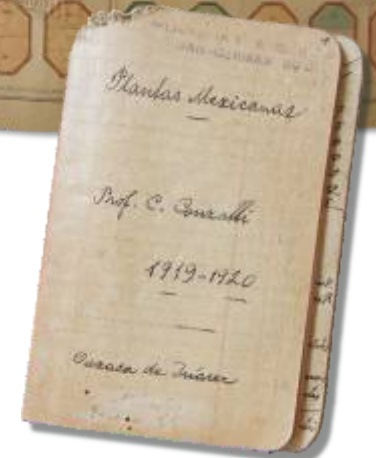 Plantas Mexicanas
Prof. C. Conzatti
1919-1920
Oaxaca de Juárez